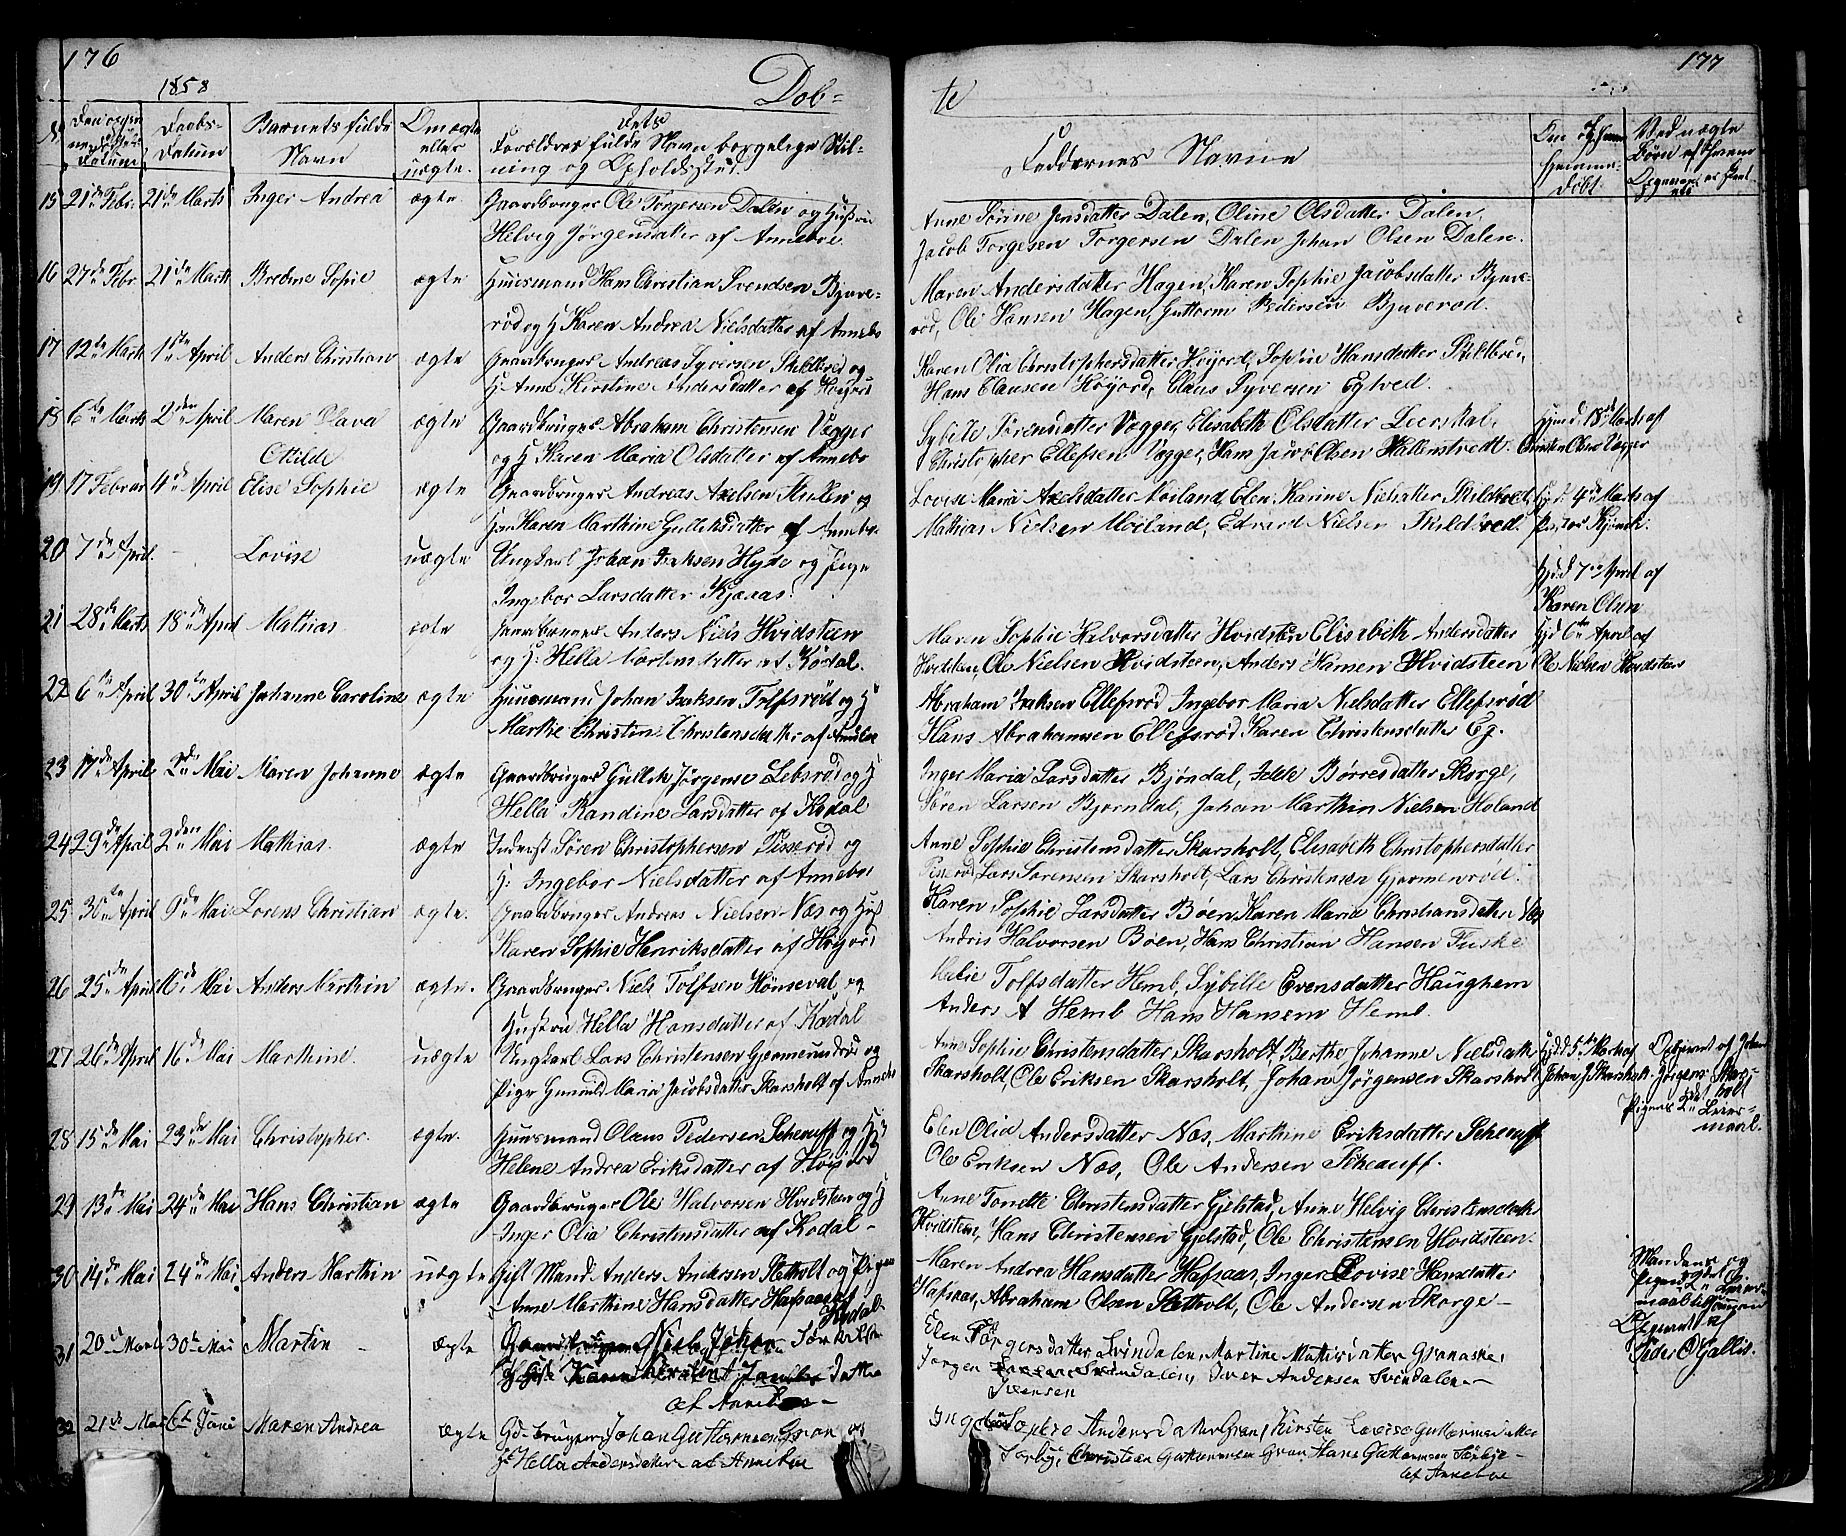 176
1858
Døb=
te
177
No
Daabs-
Datum
Barnets fulde
Navn
Om ægte
eller
uægte.
Forældres fulde Navn borgelige Stil-
ning og Opholdssted.
Faddernes Navne
hjemme-
døbt.
Ved uægte
Børn af
15 21de Febr. 21de Marts Inger Andrea ægte Gaardbruger Ole Torgersen Dalen og Hustru
Helvig Jørgensdatter af Annebo
Anne Sørine Jensdatter Dalen, Oline Olsdatter Dalen,
Jacob Torgesen Torgersen Dalen Johan Olsen Dalen.
16 27de Febr. 21de Marts Bredine Sofie ægte Huusmand Hans Christian Svendsen Bjuve-
rød og H Karen Andrea Nielsdatter af Annebo
Maren Andersdatter Hagen, Karen Sophie Jacobsdatter Bjuve-
rød, Ole Hansen Hagen, Guttorm Pedersen Bjuverød.
17 12de Marts 1ste April Anders Christian ægte Gaardbruger Andreas Syversen Skildbred og
H Anne Kirstine Andersdatter af Høijord
Karen Olia Christophersdatter Høyord, Sophie Hansdatter
Hans Clausen Høyord, Claus Syversen
18 6de Marts 2den April Maren Olava ægte Gaardbruger Abraham Christensen Vegger
Ottilde
og H Karen Maria Olsdatter af Annebo
Sybille Sørensdatter Vegger, Elisabeth Olsdatter Leerskal,
Christopher Ellefsen Vegger, Hans Jacob Olsen Hallenstvedt.
Hjmd. 18de Marts af
Christen Olsen Vegger
19 17 Februar 4de April Elise Sophie ægte Gaardbruger Andreas Axelsen og
H Karen Marthine Gulliksdatter af Annebo
Lovise Maria Axelsdatter Møiland, Elen Karine Nielsdatter
Mathias Nielsen Møiland, Edvard Nielsen
Hjd. 4de Marts af
Pastor
20 7de April - Lovise uægte Ungkarl Johan Isaksen Hyde og Pige
Ingebor Larsdatter Kjæraas.
Hjd 7de April af
Karen Olsen
21 28de Marts 18de April Mathias ægte Gaardbruger Anders Niels Hvidsteen
og H: Hella Mortensdatter af Kodal.
Maren Sophie Halvorsdatter Hvidsten Elisabeth Andersdatter
Hvidsten, Ole Nielsen Hvidsteen, Anders Hansen Hvidsteen
Hjd 6te April af
Ole Nielsen Hvidsteen
22 6te April 30te April Johanne Caroline ægte Huusmand Johan Isaksen Tolfsrød og H
Marthe Christine Christensdatter af
Abraham Isaksen Ellefsrød Ingebor Maria Nielsdatter Ellefsrød
Hans Abrahamsen Ellefsrød Karen Christensdatter Eg.
23 17de April 2den Mai Maren Johanne ægte Gaardbruger Gullik Jørgensen Lebsrød og H
Hella Randine Larsdatter af Kodal
Inger Maria Larsdatter Bjøndal, Idde Børresdatter Skorge,
Søren Larsen Bjørndal, Johan Marthin Nielsen Holand
24 29de April 2den Mai Mathias. ægte Inderst Søren Christophersen Pisserød og
H: Ingebor Nielsdatter af Annebo
Anne Sophie Christensdatter Skarsholt, Elisabeth Christophersdatter
Pisserød Lars Sørensen Skarsholt, Lars Christensen Gjermenrød.
25 30te April 9de Mai Lorens Christian ægte. Gaardbruger Andreas Nielsen Næs og Hust
Karen Sophie Henriksdatter af Høijord
Karen Sophie Larsdatter Bøen, Karen Maria Christiansdatter Næs
Andris Halvorsen Bøen, Hans Christian Hansen Fuske
26 25de April 16de Mai Anders Marthin ægte. Gaardbruger Niels Tolfsen Hønseval og
Hustru Hella Hansdatter af Kodal
Malie Tolfsdatter Hemb, Sybille Evensdatter Haughem
Anders A Hemb Hans Hansen Hemb.
27 26de April 16de Mai Marthine. uægte Ungkarl Lars Christensen Gjermundrød og
Pige Gunild Maria Jacobsdatter Skarsholt af Annebo
Anne Sophie Christensdatter Skarsholt, Berthe Johanne Nielsdatter
Skarsholt, Ole Eriksen Skarsholt, Johan Jørgensen Skarsholt
Hjd. 5te Mai af
Johan J Skarsholt.
Opgivet af Johan
Jørgensen Skars-
holt
Pigens 2det Leier-
maal.
28 15de Mai 23de Mai Christopher. ægte. Huusmand Olaus Pedersen Scheauff og H
Helene Andrea Eriksdatter af Høijord
Elen Olia Andersdatter Næs, Marthine Eriksdatter Scheauff
Ole Eriksen Næs, Ole Andersen Scheauff.
29 13de Mai 24de Mai Hans Christian ægte Gaardbruger Ole Halvorsen Hvidsteen og H
Inger Olia Christensdatter af Kodal-
Anne Tonette Christensdatter Gjelstad, Anne Helvig Christensdatter
Hvidsteen, Hans Christensen Gjelstad, Ole Christensen Hvidsteen.
30 14de Mai 24de Mai Anders Marthin uægte Gift Mand Anders Andersen Stetholt og Pigen
Anne Marthine Hansdatter Hafsaas af
Kodal-
Maren Andrea Hansdatter Hafsaas, Inger Lovise Hansdatter
Hafsaas, Abraham Olsen Stetholt, Ole Andersen Skorge-
Mandens og
Pigens 1det Leier-
maal tilsammen
Opgivet af
Peder O Gallis.
31 20de Marts 30te Mai Martin - ægte Gaardbruger Niels Johan
af Annebo-
Elen Torgersdatter Svindalen, Martine Mathisdatter Granaske,
Jørgen Svindalen, Iver Andersen Svindalen-
Svensen
32 21de Mai 6te Juni Maren Andrea ægte Gdbruger Johan Guttormsen Gran og
H Hella Andersdatter af Annebo
Ingeborg Sophie Andersdatter Gran, Kirsten Lovise Guttormsdatter
Sørby, Christian Guttormsen Gran Hans Guttormsen Sørbye-
af Annebo